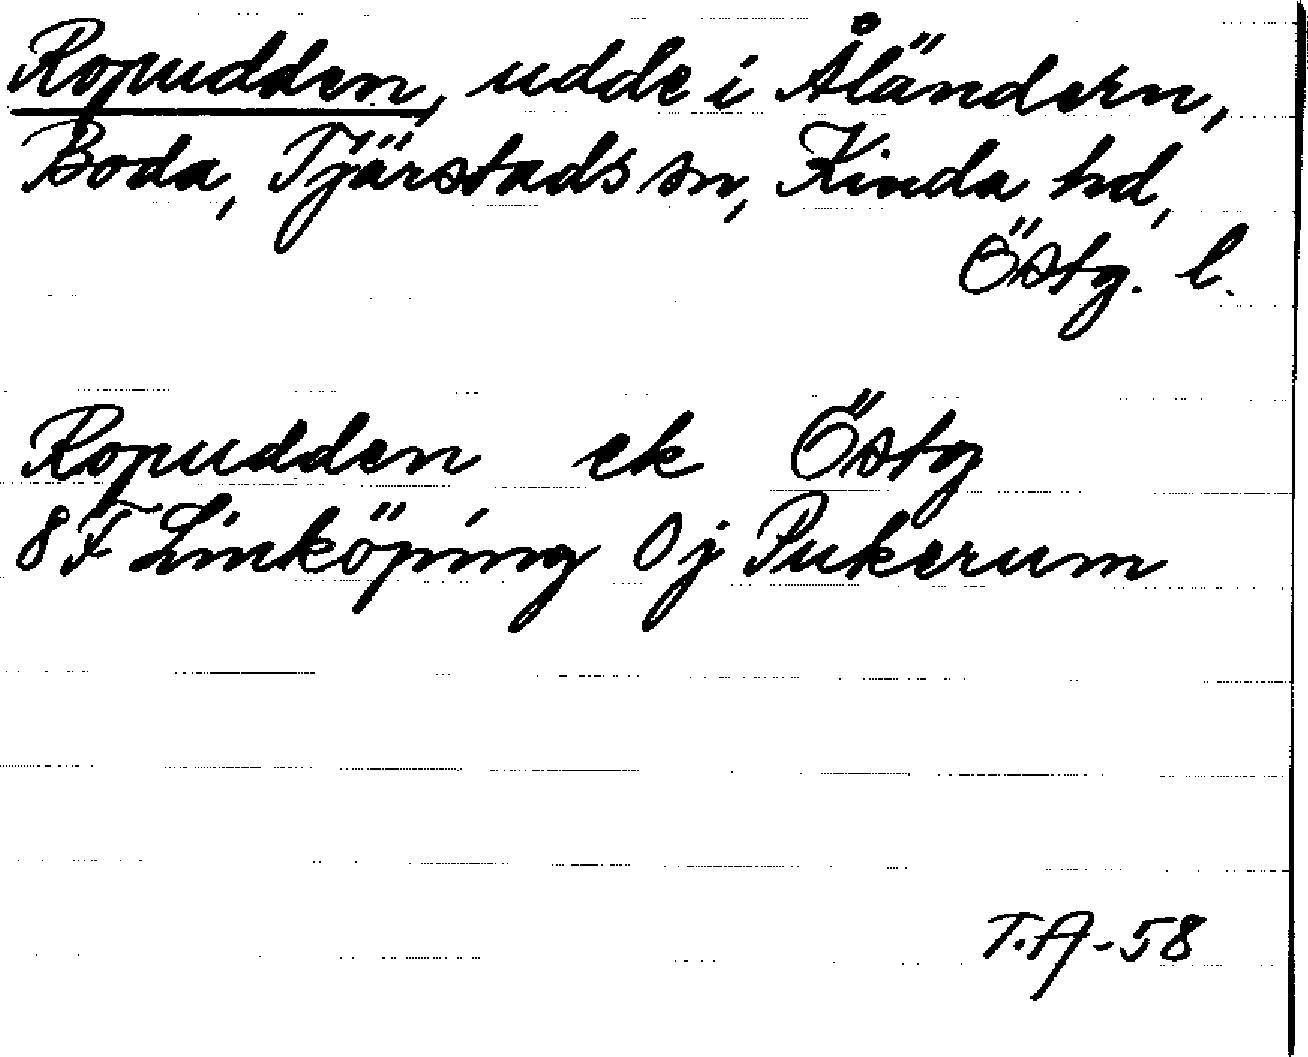 Ropudden, udde i Åländern,
Boda, Tjärstads sn, Kinda hd,
Östg. l.
Ropudden ek Östg
8F Linköping 0j Pukerum
T.A-58